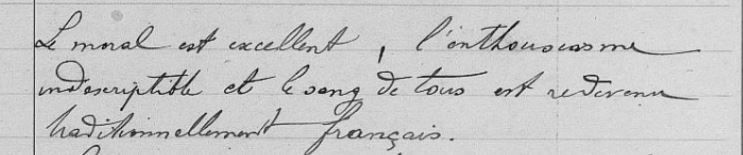 Le moral est excellent, l'enthousiasme
indescriptible et le sang de tous est redevenu
traditionnellement français.